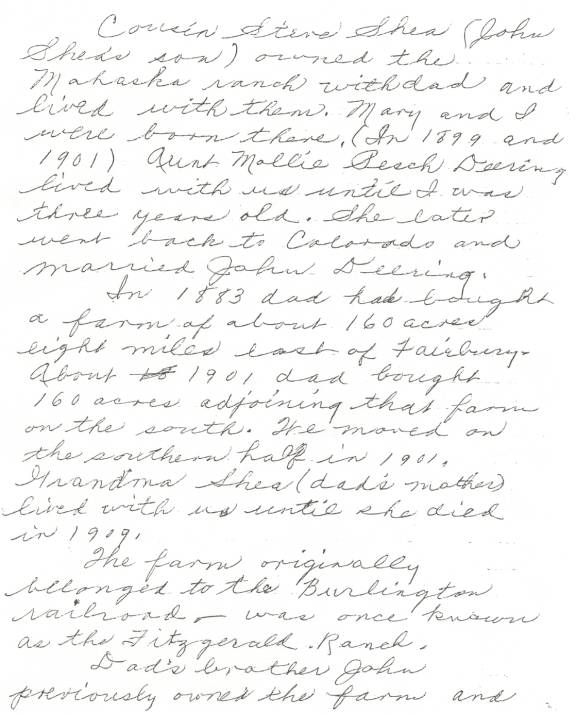 Cousin Steve Shea (John
Shea's son) owned the
Mahaska ranch with dad and
lived with them. Mary and I
were born there. (In 1899 and
1901) Aunt Mollie Pesch Deering
lived with us until I was
three years old. She later
went back to Colorado and
married John Deering.
In 1883 dad had bought
a farm of about 160 acres
eight miles east of Fairbury.
About 1901 dad bought
160 acres adjoining that farm
on the south. We moved on
the southern half in 1901.
Grandma Shea (dad's mother)
lived with us until she died
in 1909.
The farm originally
belonged to the Burlington
railroad - was once known
as the Fitzgerald Ranch.
Dad's brother John
previously owned the farm and